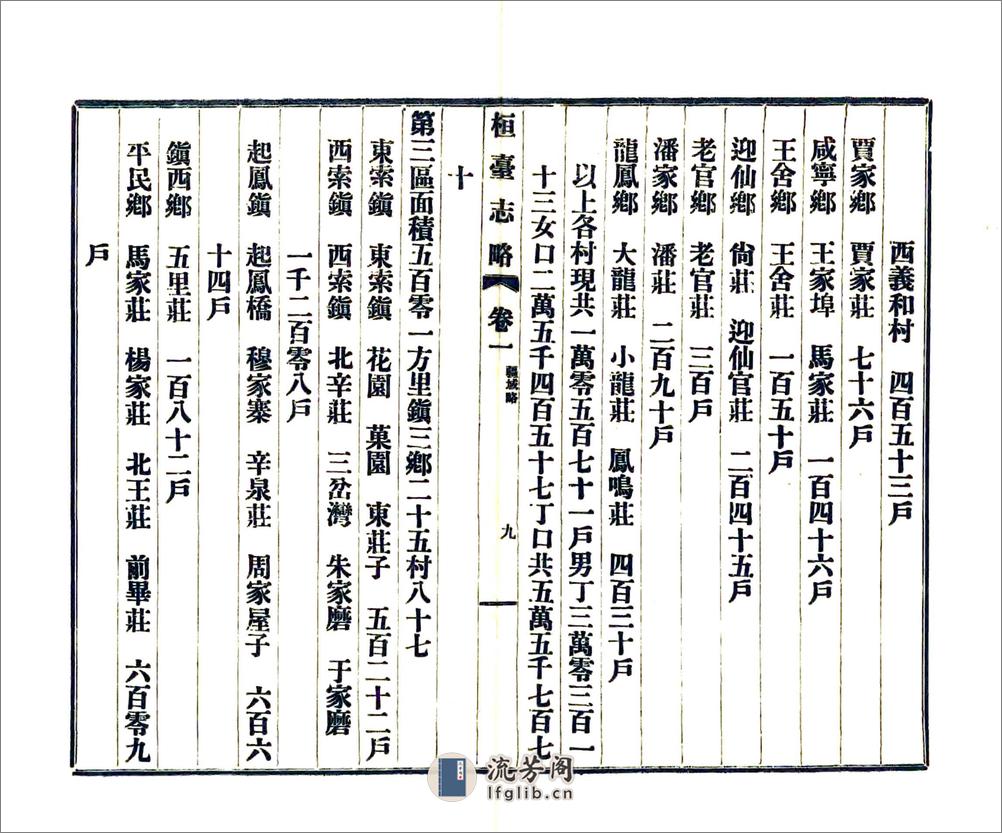 西義和村　四百五十三戶
賈家鄉　賈家莊　七十六戶
咸寧鄉　王家埠　馬家莊　一百四十六戶
王舍鄉　王舍莊　一百五十戶
迎仙鄉　尙莊　迎仙官莊　二百四十五戶
老官鄉　老官莊　三百戶
潘家鄉　潘莊　二百九十戶
龍鳳鄉　大龍莊　小龍莊　鳳鳴莊　四百三十戶
以上各村現共一萬零五百七十一戶男丁三萬零三百一
十三女口二萬五千四百五十七丁口共五萬五千七百七
桓臺志略　卷一　疆域略　九
十
第三區面積五百零一方里鎭三鄉二十五村八十七
東索鎭　東索鎭　花園　菓園　東莊子　五百二十二戶
西索鎭　西索鎭　北辛莊　三岔灣　朱家磨　于家磨
一千二百零八戶
起鳳鎭　起鳳橋　穆家寨　辛泉莊　周家屋子　六百六
十四戶
鎭西鄉　五里莊　一百八十二戶
平民鄉　馬家莊　楊家莊　北王莊　前畢莊　六百零九
戶
流芳阁
lfglib.cn